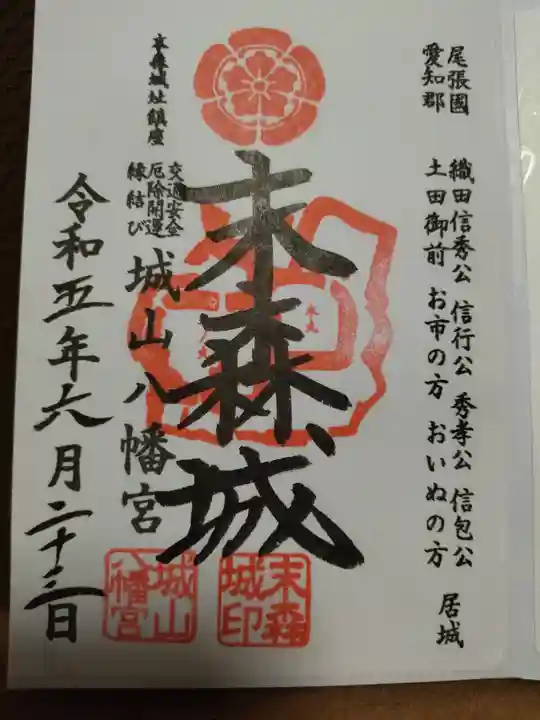 尾張國
愛知郡
織田信秀公 信行公 秀孝公 信包公
土田御前 お市の方 おいぬの方 居城
末森城
末森城址鎮座
交通安全
厄除開運
縁結び
城山八幡宮
令和五年六月二十三日
末森
城印
城山
八幡宮